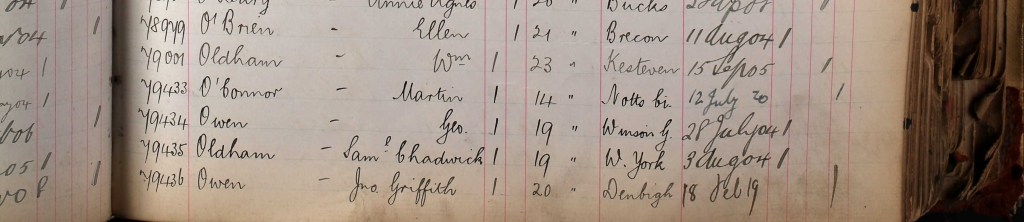 Annie Agnes 1 20 " Bucks
78979 O'Brien - Ellen 1 21 " Brecon 11 Aug 04 1
79001 Oldham - Wm 1 23 " Kesteven 15 Sep 05 1
79433 O'Connor - Martin 1 14 " Notts Co. 12 July 20 1
79434 Owen - Geo. 1 19 " Winson G. 28 July 04 1
79435 Oldham - Saml Chadwick 1 19 " W. York 3 Aug 04 1
79436 Owen - Jno Griffith 1 20 " Denbigh 18 Feb 19 1